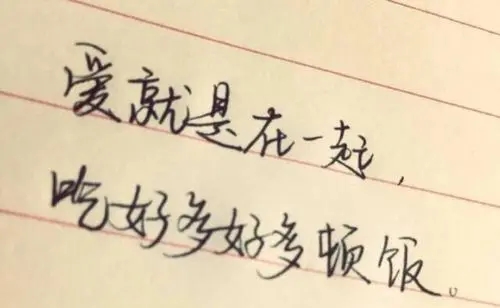 爱就是在一起，
吃好多好多顿饭。